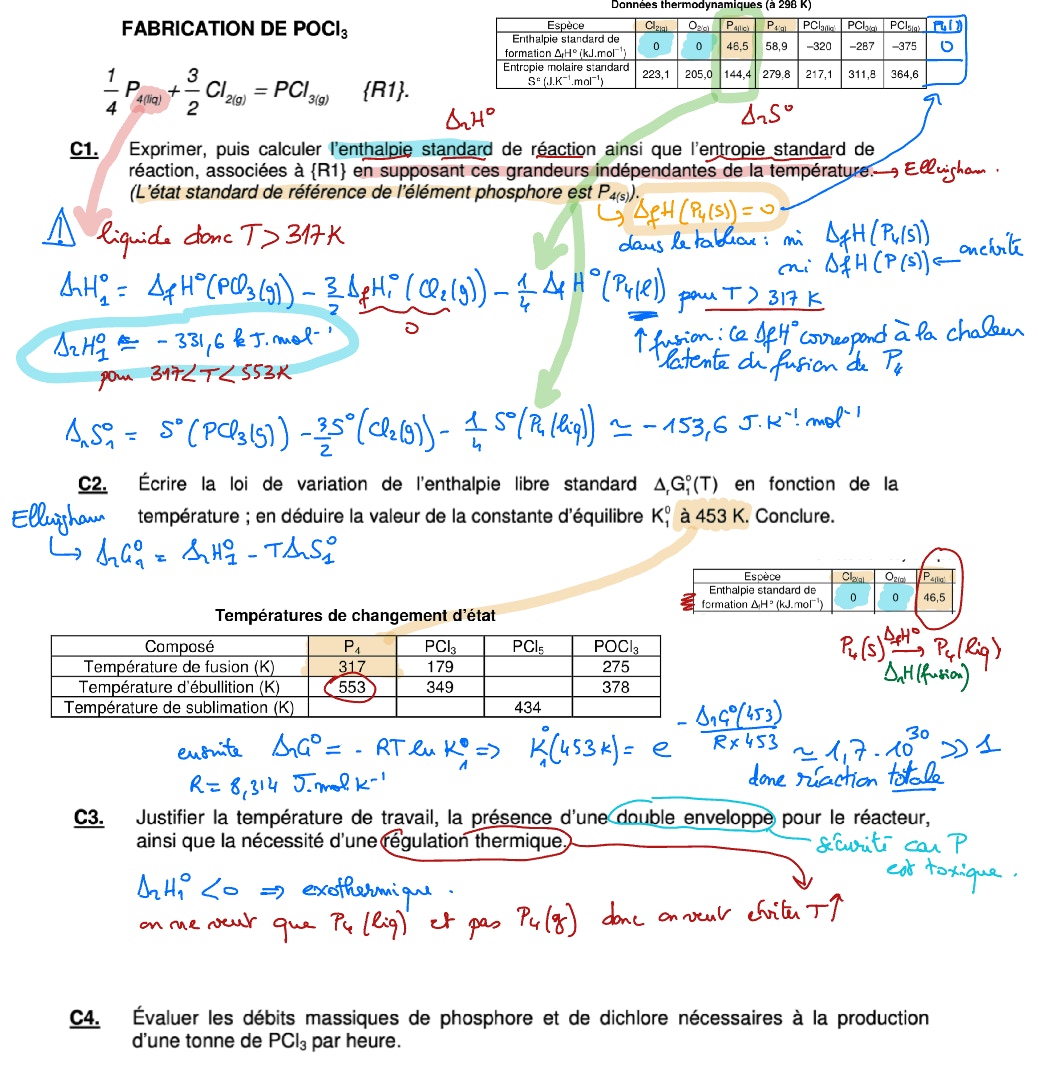 Données thermodynamiques (à 298 K)
FABRICATION DE POCl₃
Espèce Cl₂(g) O₂(g) P₄(liq) P₄(g) PCl₃(liq) PCl₃(g) PCl₅(g) P₄(s)
Enthalpie standard de formation ΔfH° (kJ.mol⁻¹) 0 0 46,5 58,9 −320 −287 −375 0
Entropie molaire standard S° (J.K⁻¹.mol⁻¹) 223,1 205,0 144,4 279,8 217,1 311,8 364,6
1/4 P₄(liq) + 3/2 Cl₂(g) = PCl₃(g) {R1}.
ΔrH° ΔrS°
C1. Exprimer, puis calculer l'enthalpie standard de réaction ainsi que l'entropie standard de
réaction, associées à {R1} en supposant ces grandeurs indépendantes de la température. → Ellingham.
(L'état standard de référence de l'élément phosphore est P₄(s)).
↳ ΔfH(P₄(s)) = 0
⚠ liquide donc T > 317 K
dans le tableau : ni ΔfH(P₄(s))
ni ΔfH(P(s)) ←
ΔrH₁° = ΔfH°(PCl₃(g)) − 3/2 ΔfH°(Cl₂(g)) − 1/4 ΔfH°(P₄(l)) pour T > 317 K
0
ΔrH₁° ≃ − 331,6 kJ.mol⁻¹
pour 317<T<553K
↑ fusion : ce ΔfH° correspond à la chaleur
latente de fusion de P₄
ΔrS₁° = S°(PCl₃(g)) − 3/2 S°(Cl₂(g)) − 1/4 S°(P₄(liq)) ≃ − 153,6 J.K⁻¹.mol⁻¹
C2. Écrire la loi de variation de l'enthalpie libre standard ΔrG₁°(T) en fonction de la
température ; en déduire la valeur de la constante d'équilibre K₁⁰ à 453 K. Conclure.
Ellingham
↳ ΔrG₁° = ΔrH₁° − TΔrS₁°
Espèce Cl₂(g) O₂(g) P₄(liq)
Enthalpie standard de formation ΔfH° (kJ.mol⁻¹) 0 0 46,5
P₄(s) →ΔfH° P₄(liq)
ΔrH(fusion)
Températures de changement d'état
Composé P₄ PCl₃ PCl₅ POCl₃
Température de fusion (K) 317 179 275
Température d'ébullition (K) 553 349 378
Température de sublimation (K) 434
ensuite ΔrG° = − RT ln K₁° ⇒ K₁°(453K) = e^(− ΔrG°(453)/(R×453)) ≃ 1,7 . 10³⁰ ≫ 1
R = 8,314 J.mol K⁻¹
donc réaction totale
C3. Justifier la température de travail, la présence d'une double enveloppe pour le réacteur,
ainsi que la nécessité d'une régulation thermique.
sécurité car P
est toxique.
ΔrH₁° < 0 ⇒ exothermique.
on ne veut que P₄ (liq) et pas P₄(g) donc on veut éviter T↑
C4. Évaluer les débits massiques de phosphore et de dichlore nécessaires à la production
d'une tonne de PCl₃ par heure.